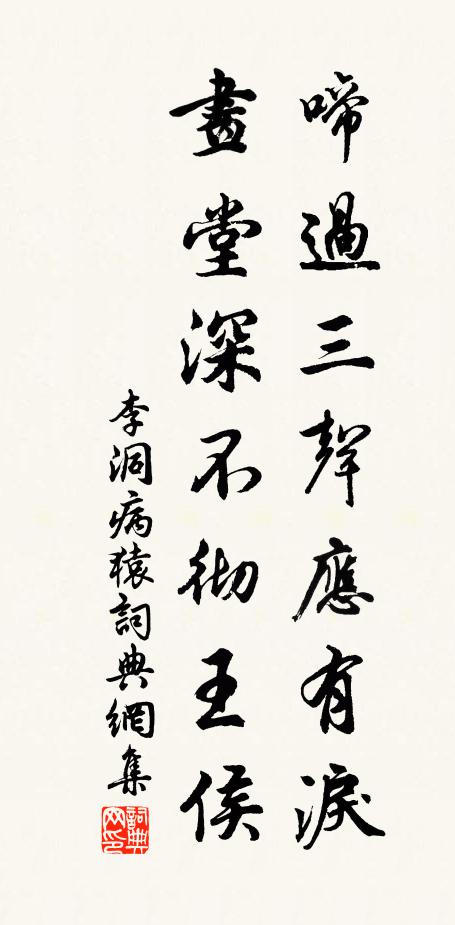 啼過三聲應有淚
畫堂深不彻王侯
李洞病猿詞典網集
詞典网印